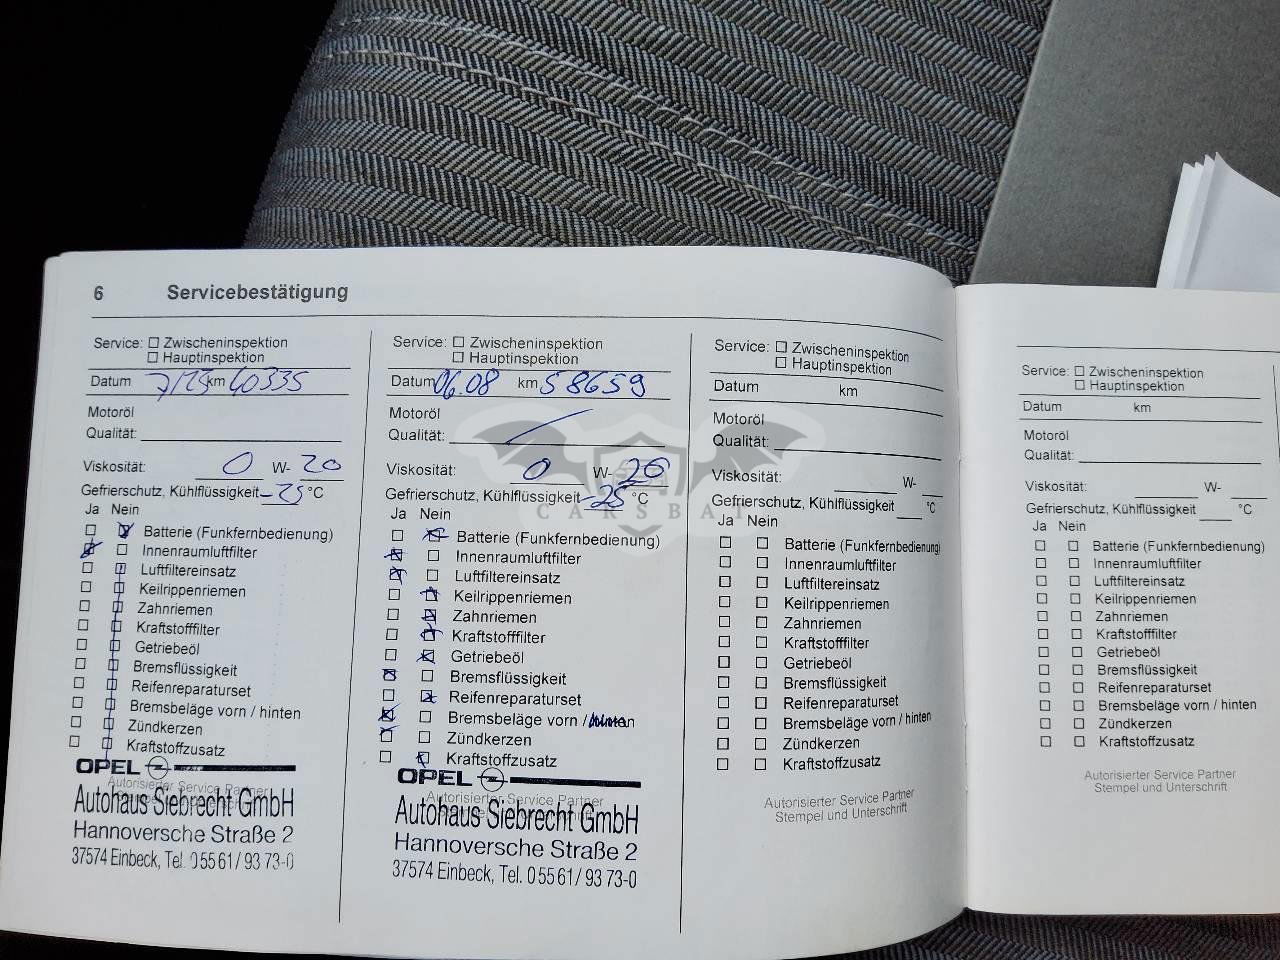 6 Servicebestätigung
Service: Zwischeninspektion
Hauptinspektion
Datum 7/23 km 40335
Motoröl
Qualität:
Viskosität: 0 W- 20
Gefrierschutz, Kühlflüssigkeit -25 °C
Ja Nein
Batterie (Funkfernbedienung)
Innenraumluftfilter
Luftfiltereinsatz
Keilrippenriemen
Zahnriemen
Kraftstofffilter
Getriebeöl
Bremsflüssigkeit
Reifenreparaturset
Bremsbeläge vorn / hinten
Zündkerzen
Kraftstoffzusatz
OPEL
Autorisierter Service Partner
Autohaus Siebrecht GmbH
Hannoversche Straße 2
37574 Einbeck, Tel. 05561/9373-0
Service: Zwischeninspektion
Hauptinspektion
Datum 06.08 km 58659
Motoröl
Qualität:
Viskosität: 0 W- 20
Gefrierschutz, Kühlflüssigkeit -25 °C
Ja Nein
Batterie (Funkfernbedienung)
Innenraumluftfilter
Luftfiltereinsatz
Keilrippenriemen
Zahnriemen
Kraftstofffilter
Getriebeöl
Bremsflüssigkeit
Reifenreparaturset
Bremsbeläge vorn / hinten
Zündkerzen
Kraftstoffzusatz
OPEL
Autorisierter Service Partner
Autohaus Siebrecht GmbH
Hannoversche Straße 2
37574 Einbeck, Tel. 05561/9373-0
Service: Zwischeninspektion
Hauptinspektion
Datum km
Motoröl
Qualität:
Viskosität: W-
Gefrierschutz, Kühlflüssigkeit °C
Ja Nein
Batterie (Funkfernbedienung)
Innenraumluftfilter
Luftfiltereinsatz
Keilrippenriemen
Zahnriemen
Kraftstofffilter
Getriebeöl
Bremsflüssigkeit
Reifenreparaturset
Bremsbeläge vorn / hinten
Zündkerzen
Kraftstoffzusatz
Autorisierter Service Partner
Stempel und Unterschrift
Service: Zwischeninspektion
Hauptinspektion
Datum km
Motoröl
Qualität:
Viskosität: W-
Gefrierschutz, Kühlflüssigkeit °C
Ja Nein
Batterie (Funkfernbedienung)
Innenraumluftfilter
Luftfiltereinsatz
Keilrippenriemen
Zahnriemen
Kraftstofffilter
Getriebeöl
Bremsflüssigkeit
Reifenreparaturset
Bremsbeläge vorn / hinten
Zündkerzen
Kraftstoffzusatz
Autorisierter Service Partner
Stempel und Unterschrift
CARSBAT